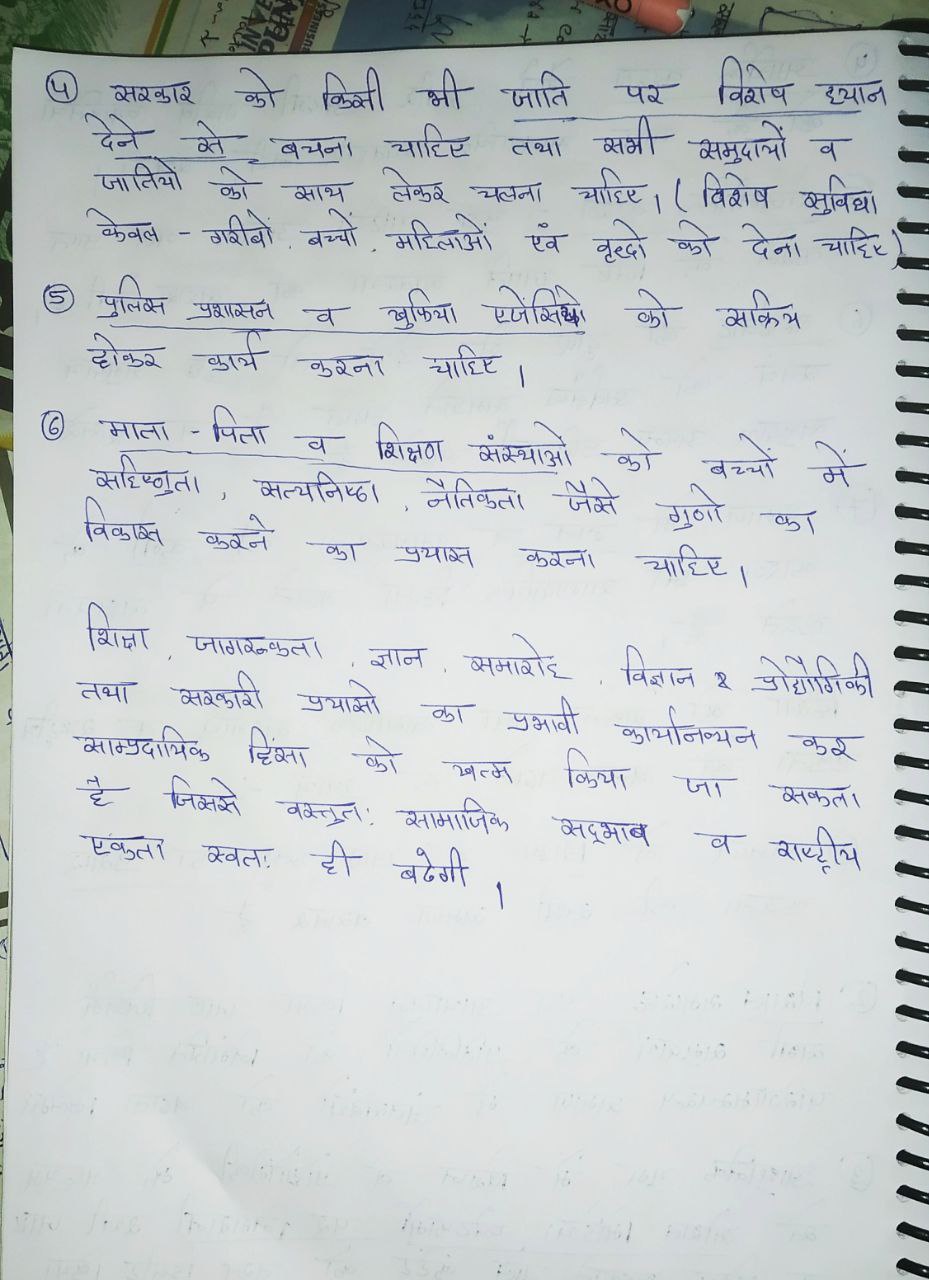 ④ सरकार को किसी भी जाति पर विशेष ध्यान
देने से बचना चाहिए तथा सभी समुदायों व
जातियों को साथ लेकर चलना चाहिए। (विशेष सुविधा
केवल - गरीबों, बच्चों, महिलाओं एवं वृद्धो को देना चाहिए)
⑤ पुलिस प्रशासन व खुफिया एजेंसियो को सक्रिय
होकर कार्य करना चाहिए।
⑥ माता - पिता व शिक्षण संस्थाओ को बच्चों में
सहिष्णुता, सत्यनिष्ठा, नैतिकता जैसे गुणो का
विकास करने का प्रयास करना चाहिए।
शिक्षा, जागरूकता, ज्ञान, समारोह, विज्ञान & प्रोद्यौगिकी
तथा सरकारी प्रयासो का प्रभावी कार्यानव्यन कर
साम्प्रदायिक हिसा को खत्म किया जा सकता
है जिससे वस्तुत: सामाजिक सद्भाव व राष्ट्रीय
एकता स्वत: ही बढेगी।